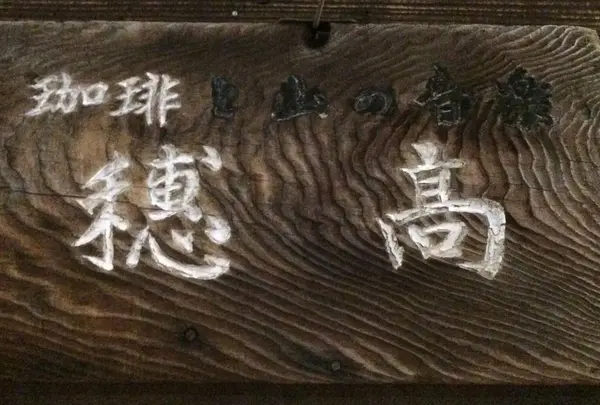 珈琲と山の音楽
穂高